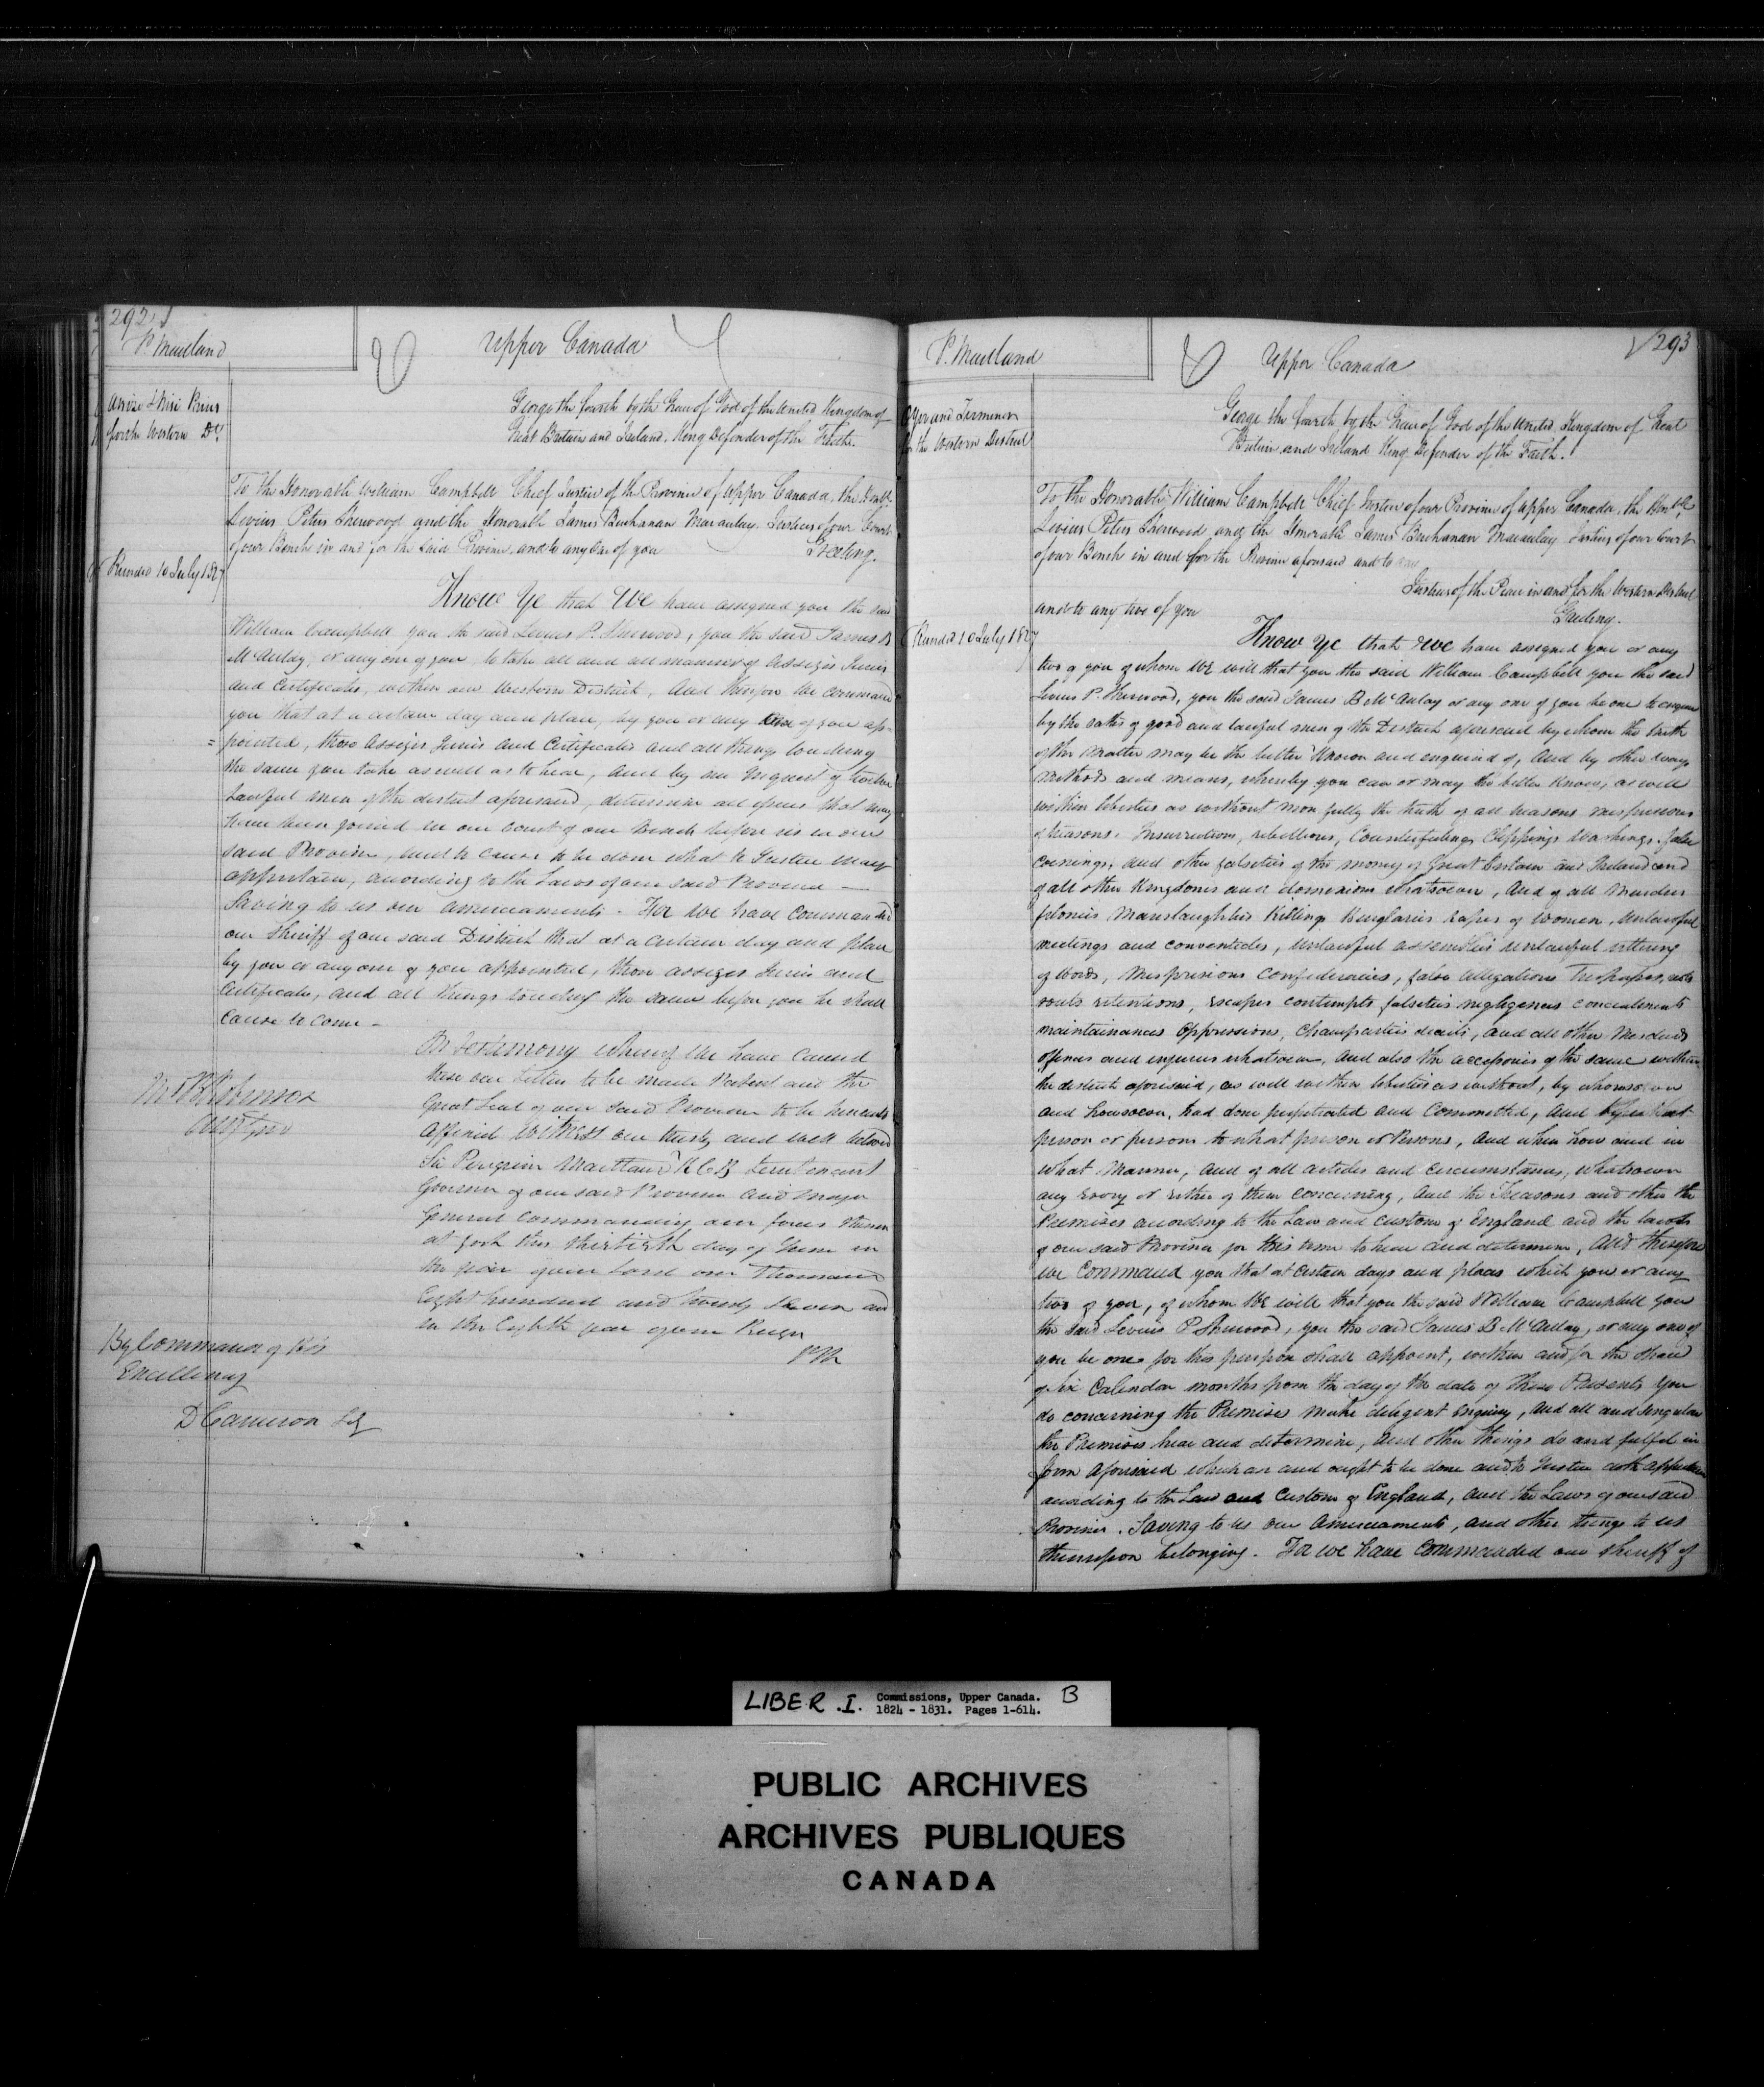 292
P. Maitland
Upper Canada
Assize & Nisi Prius
for the Western Dt.
George the fourth by the Grace of God of the United Kingdom of
Great Britain and Ireland, King Defender of the Faith.
To the Honorable William Campbell Chief Justice of the Province of Upper Canada, the Honble
Levius Peters Sherwood and the Honorable James Buchanan Macaulay Justices of our Court
of our Bench in and for the said Province, and to any One of you Greeting.
Recorded 10 July 1827
Know Ye that We have assigned you the said
William Campbell you the said Levius P. Sherwood, you the said James B
McAulay, or any one of you to take all and all manner of Assizes Juries
and Certificates, within our Western District, And therefore We command
you that at a certain day and place, by you or any One of you ap-
= pointed, those Assizes Juries and Certificates and all things touching
the same you take as well as to hear, and by an Inquest of twelve
Lawful men of the district aforesaid, determine all issues that may
have been joined in our Court of our Bench before us in our
said Province, and to cause to be done what to Justice may
appertain, according to the Laws of our said Province —
Saving to us our amerciaments - For We have Commanded
our Sheriff of our said District that at a certain day and place
by you or any one of you appointed, those assizes Juries and
Certificates, and all things touching the same before you he shall
cause to come -
In testimony whereof We have Caused
these our Letters to be made Patent and the
Great Seal of our said Province to be hereunto
affixed Witness our trusty and well beloved
Sir Peregrine Maitland K C B Lieutenant
Governor of our said Province and Major
General Commanding our forces therein
at York this thirtieth day of June in
the year of our Lord one Thousand
Eight hundred and twenty seven and
in the Eighth year of our Reign
P M
Robinson
By Command of His
Excellency
D Cameron Sy
P. Maitland
Upper Canada
293
Oyer and Terminer
for the Western District
George the fourth by the Grace of God of the United Kingdom of Great
Britain and Ireland King Defender of the Faith.
To the Honorable William Campbell Chief Justice of our Province of Upper Canada, the Honble
Levius Peters Sherwood and the Honorable James Buchanan Macaulay Justices of our Court
of our Bench in and for the Province aforesaid and to
Justices of the Peace in and for the Western District
and to any two of you Greeting.
Recorded 10 July 1827
Know Ye that We have assigned you or any
two of you of whom We will that you the said William Campbell you the said
Levius P. Sherwood, you the said James B McAulay or any one of you be one to enquire
by the oaths of good and lawful men of the District aforesaid by whom the truth
of the matter may be the better known and enquired of, And by other ways
methods and means, whereby you can or may the better know, as well
within liberties as without more fully the truth of all treasons misprisions
of treasons, Insurrections, rebellions, Counterfeitings Clippings Washings, false
coinings, and other falsities of the money of Great Britain and Ireland and
of all other Kingdoms and dominions whatsoever, And of all Murders
felonies Manslaughters Killings Burglaries rapes of women, Unlawful
meetings and conventicles, unlawful assemblies unlawful uttering
of words, Misprisions Confederacies, false Allegations Trespasses, riots
routs retentions, escapes contempts falsities negligences concealments
maintainances Oppressions, Champarties deceits, and all other Misdeeds
offences and injuries whatsoever, And also the accessories of the same within
the district aforesaid, as well within liberties as without, by whomsoever
and howsoever, had done perpetrated and committed, and by what
person or persons to what person or Persons, and when how and in
what Manner, and of all articles and circumstances, whatsoever
any Every or Either of them concerning, And the Treasons and other the
Premises according to the Law and custom of England and the laws
of our said Province for this time to hear and determine, And therefore
We Command you that at certain days and places which you or any
two of you, of whom We will that you the said William Campbell you
the said Levius P Sherwood, you the said James B McAulay, or any one of
you be one for this purpose shall appoint, within and for the space
of Six Calendar months from the day of the date of these Presents you
do concerning the Premises make diligent Enquiry, And all and singular
the Premises hear and determine, And other things do and fulfil in
form aforesaid which are and ought to be done and to Justice doth appertain
according to the Law and Custom of England, and the Laws of our said
Province. Saving to us our Amerciaments, and other things to us
thereupon belonging. For we have commanded our Sheriff of
LIBER .I. Commissions, Upper Canada. B
1824 - 1831. Pages 1-614.
PUBLIC ARCHIVES
ARCHIVES PUBLIQUES
CANADA